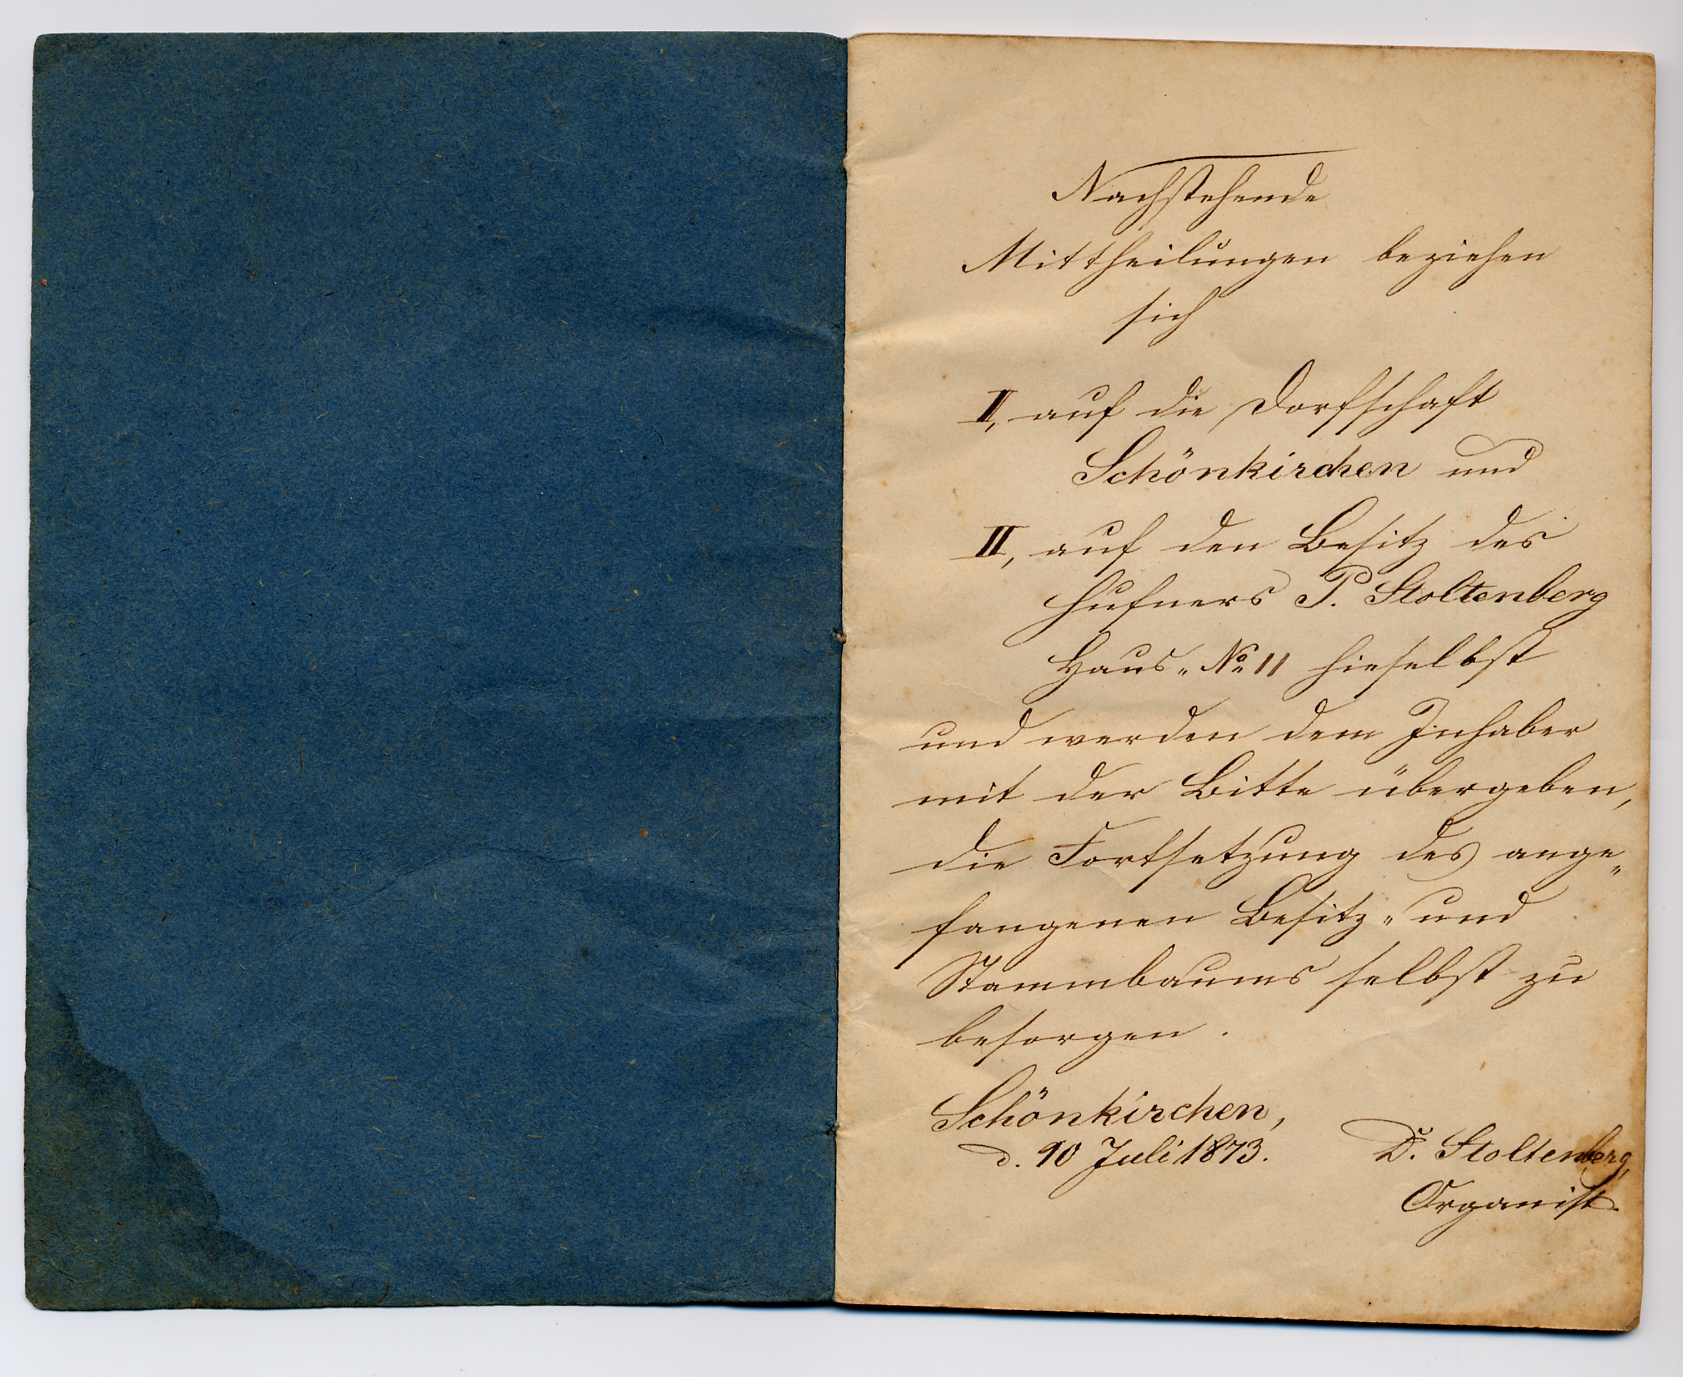 Nachstehende
Mittheilungen beziehen
sich
I, auf die Dorfschaft
Schönkirchen und
II, auf den Besitz des
Hufners P. Stoltenberg
Haus„ No 11 hieselbst
und werden dem Inhaber
mit der Bitte übergeben,
die Fortsetzung des ange„
fangenen Besitz„ und
Stammbaums selbst zu
besorgen.
Schönkirchen,
d. 10 Juli 1873.
D. Stoltenberg,
Organist.